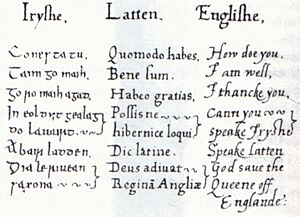 Iryshe, Latten, Englishe,
Conestatu, Quomodo habes, How doe you,
Taim go maih, Bene sum, I am well,
Go ro maih agad, Habeo gratias, I thancke you,
In eolder gealag Possis ne Cann you
do lauuirt hibernice loqui, speake Iryshe
Abair laden, Dic latine, Speake latten
Dia le riuean Deus adiuvat God save the
Saxona Reginā Angliæ Queene off
Englande.